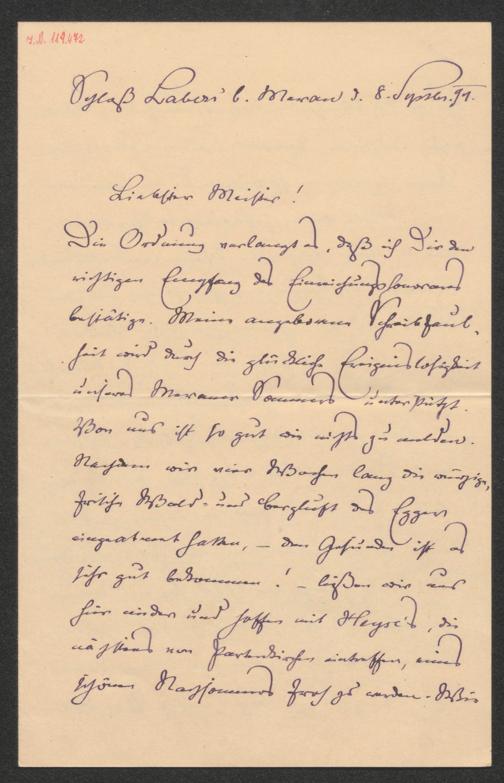 I.N. 119.472
Schloß Labers b. Meran d. 8. Septbr. 91.
Liebster Meister!
Die Ordnung verlangt es, daß ich Dir den
richtigen Empfang des Einreichungshonorars
bestätige. Meine angeborene Schreibfaul-
heit wird durch die glückliche Ereignislosigkeit
unseres Meraner Sommers unterstützt.
Von uns ist so gut wie nichts zu melden.
Nachdem wir vier Wochen lang die würzige,
frische Wald- und Bergluft des
eingeatmet hatten, – den Gesunden ist es
sehr gut bekommen! – ließen wir uns
hier nieder und hoffen mit Heyse's, die
nächstens von Partenkirchen eintreffen, eines
schönen Nachsommers froh zu werden. Wie